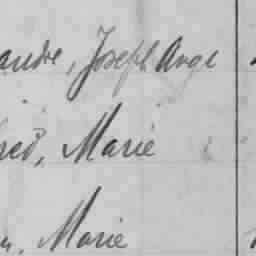 aude, Joseph Ange
red, Marie
n. Marie